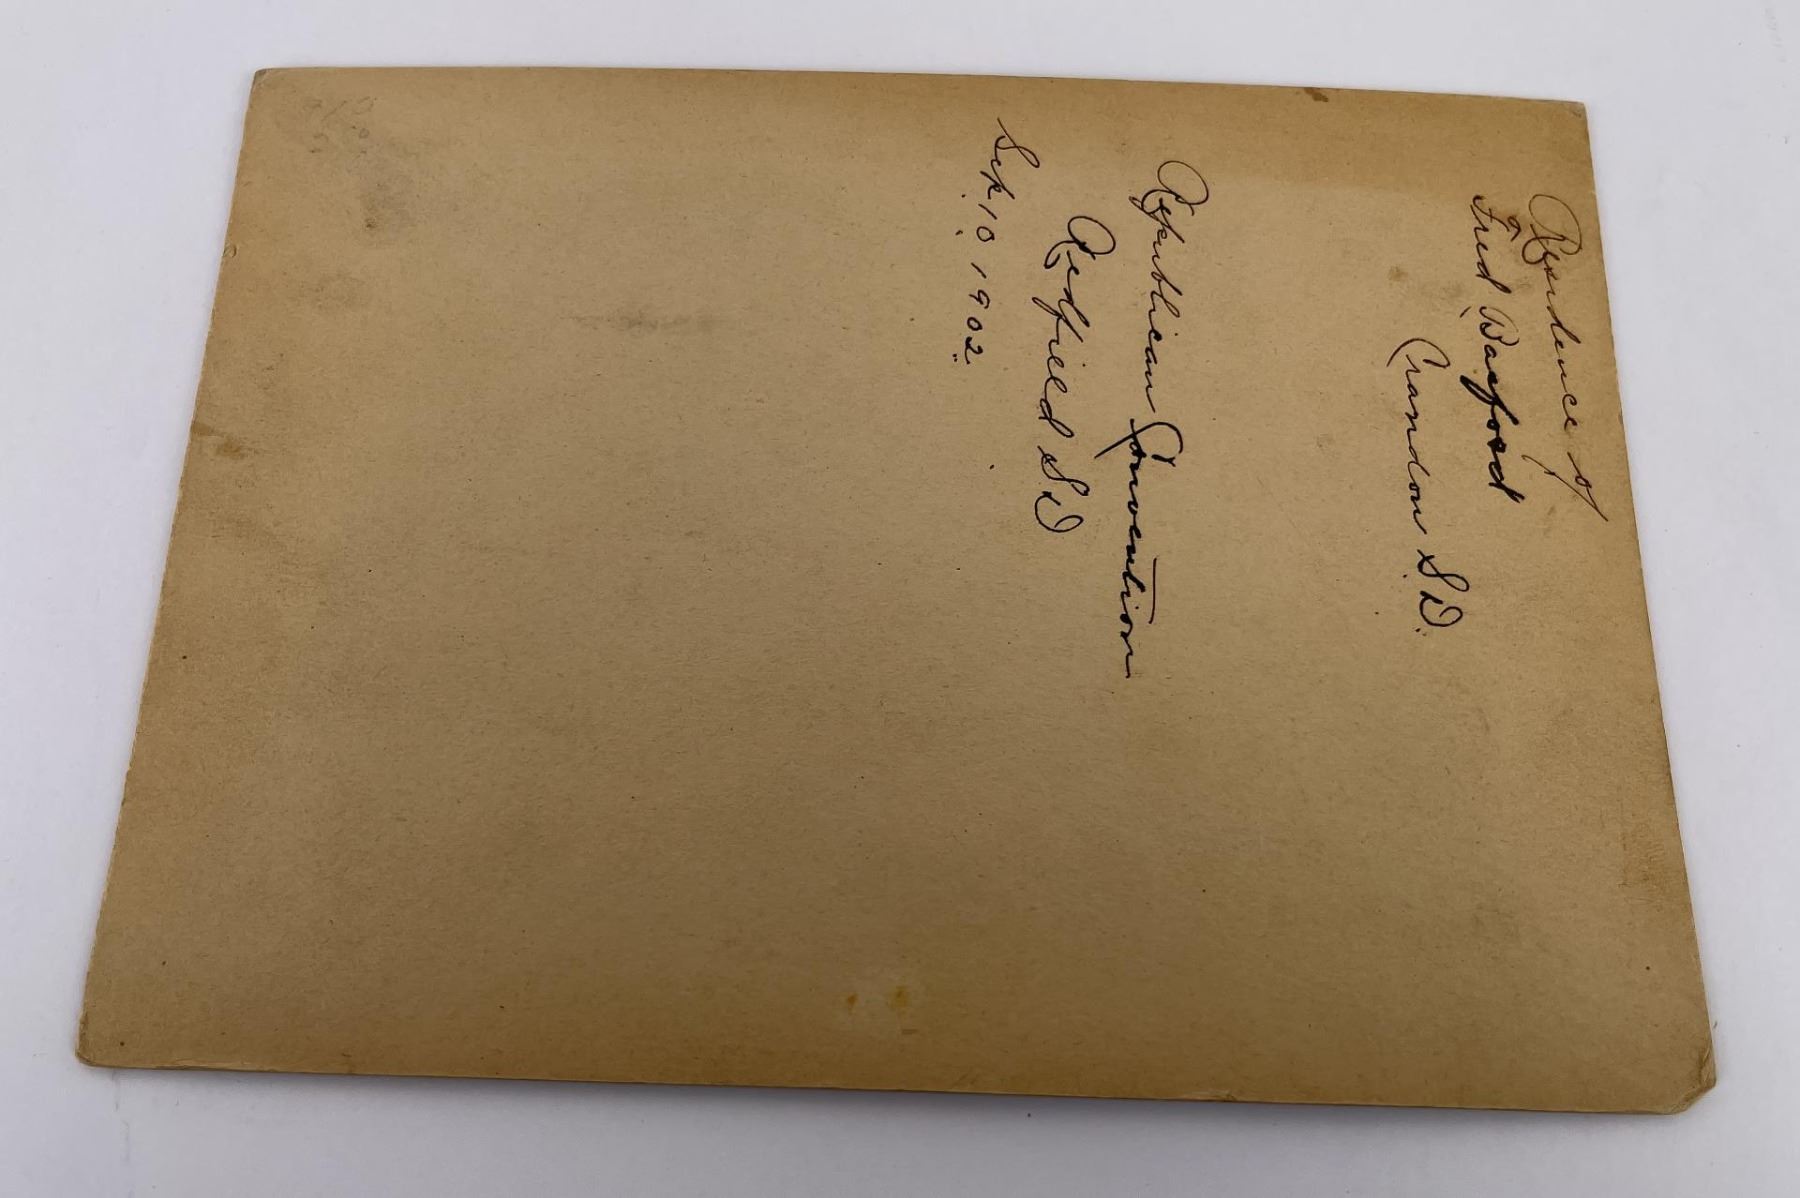 Residence of
Fred Basford
Crandon S.D.
Republican Convention
Redfield S.D
Sep. 10, 1902